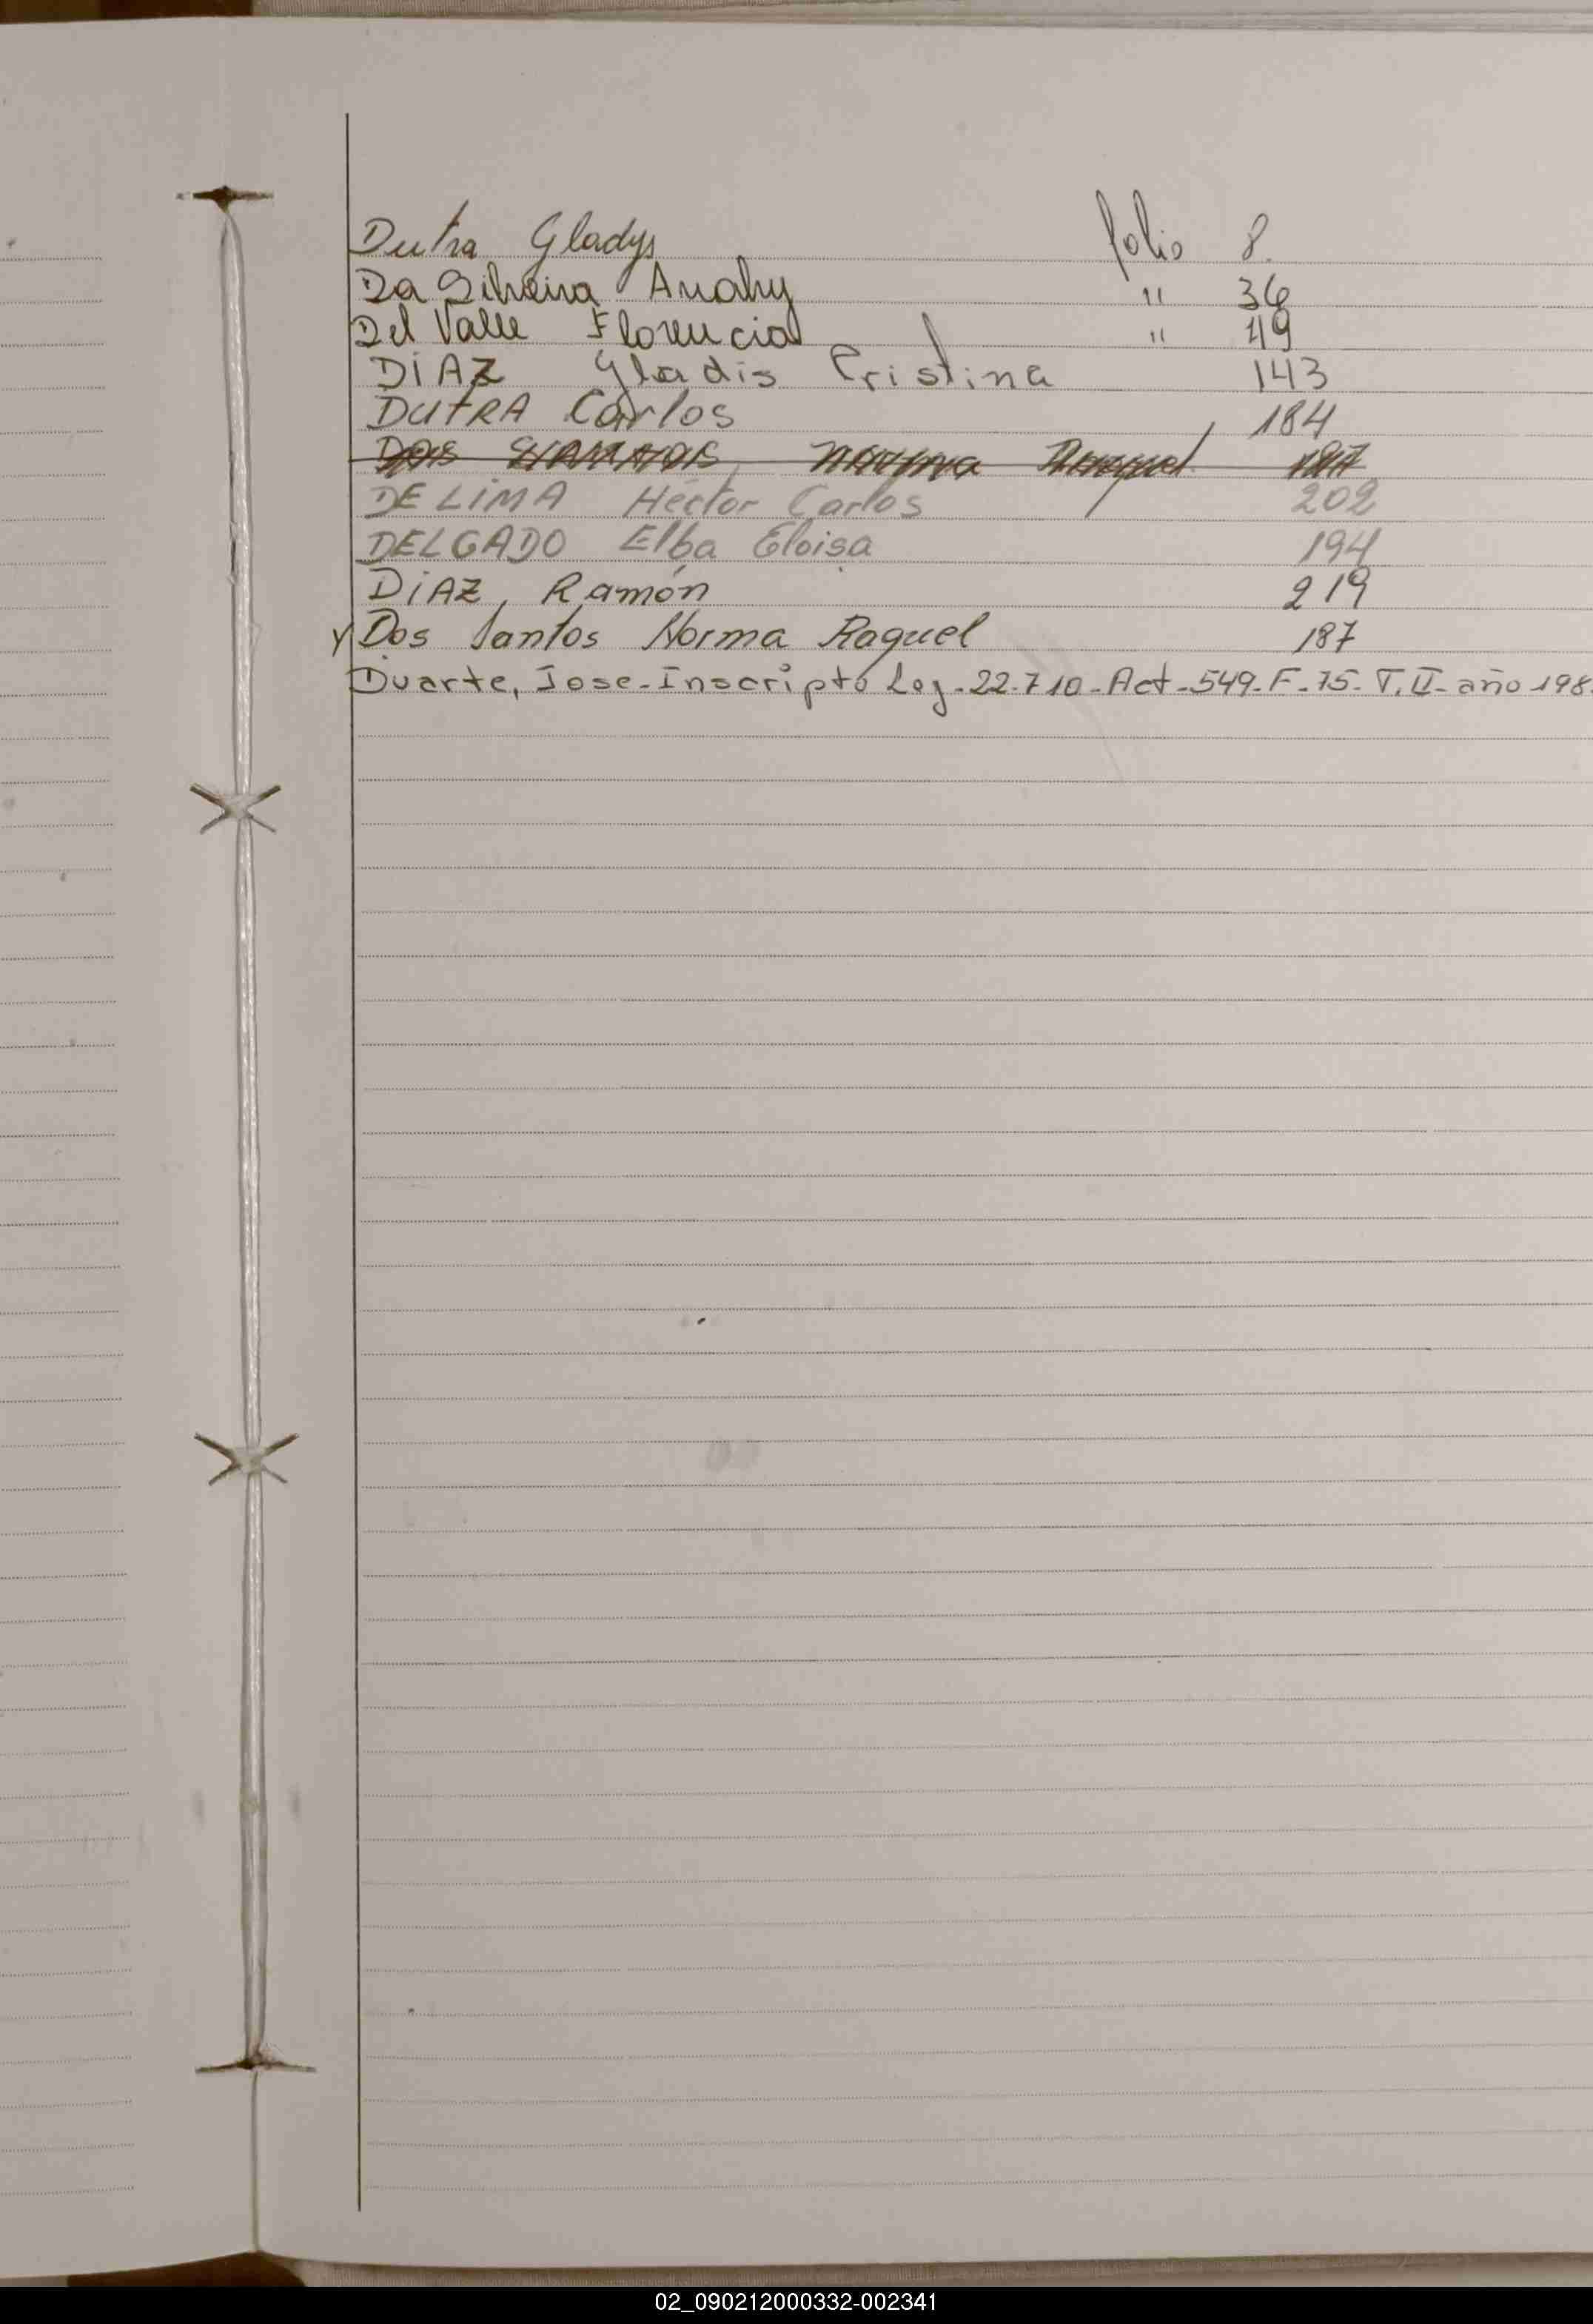 Dutra Gladys folio 8.
Da Silveira Anahy " 36
Del Valle Florencia " 49
DIAZ Gladis Cristina 143
DUTRA Carlos 184
DE LIMA Héctor Carlos 202
DELGADO Elba Eloisa 194
DIAZ, Ramón 219
Y Dos Santos Norma Raquel 187
Duarte, Jose-Inscripto Ley-22.710-Act-549-F-75-T.II-año 198
02_090212000332-002341